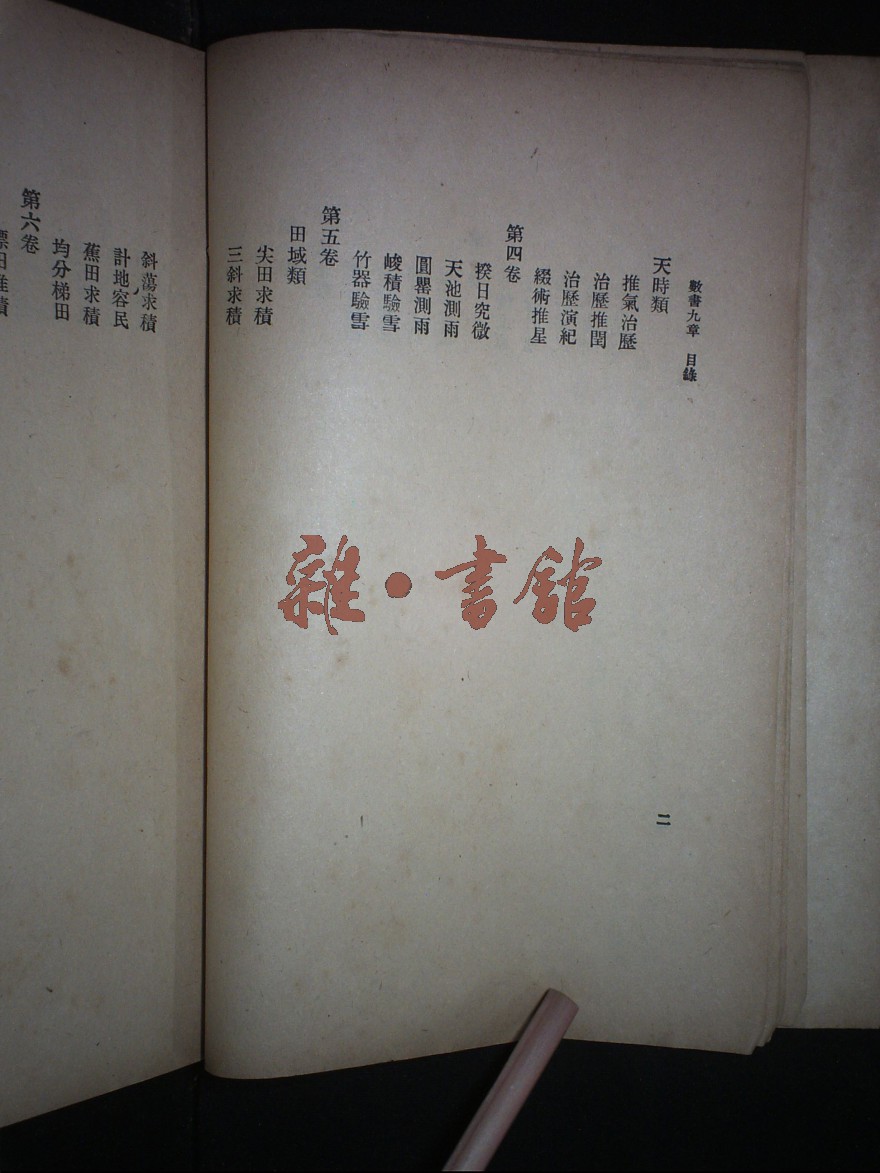 數書九章 目錄
天時類
推氣治歷
治歷推閏
治歷演紀
綴術推星
第四卷
揆日究微
天池測雨
圓罌測雨
峻積驗雪
竹器驗雪
第五卷
田域類
尖田求積
三斜求積
二
斜蕩求積
計地容民
蕉田求積
均分梯田
第六卷
雜·書館